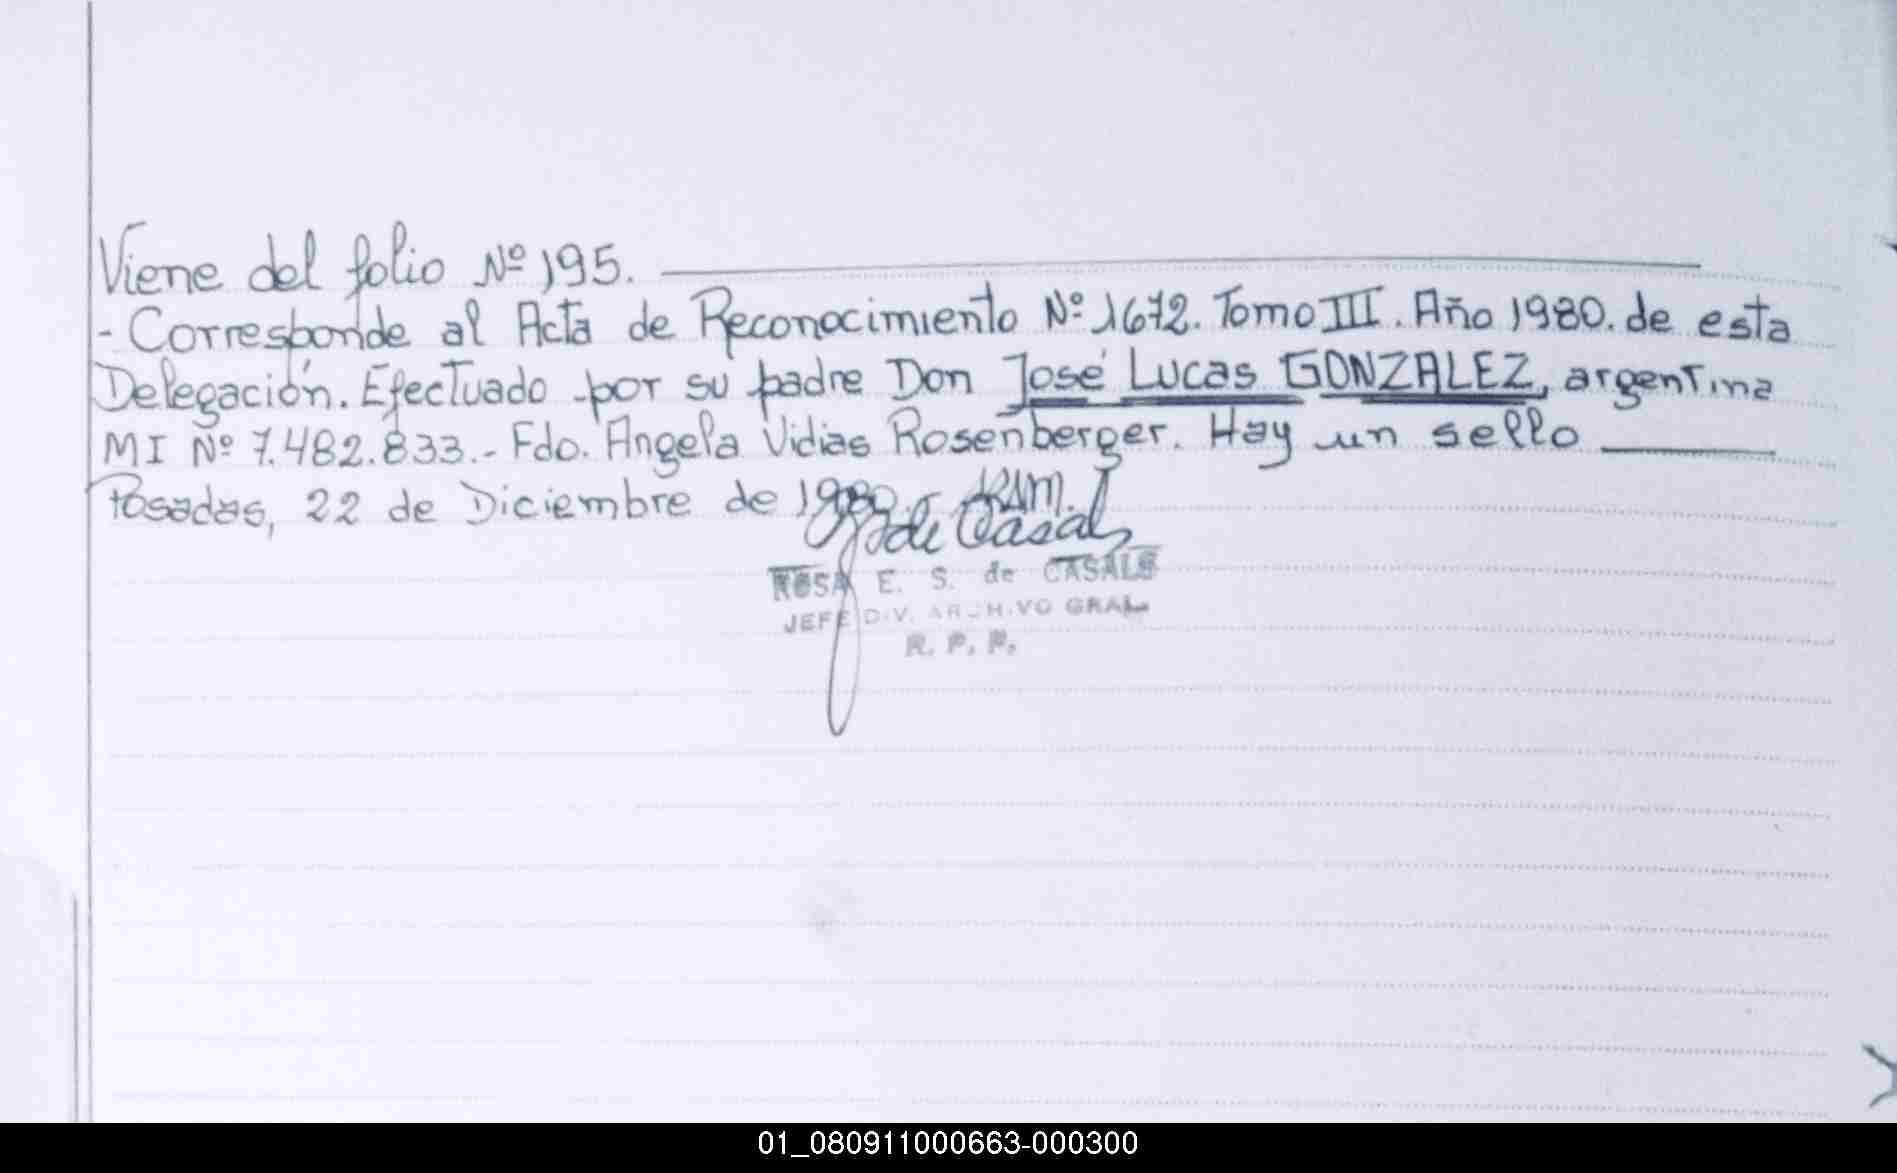 Viene del folio Nº 195.
- Corresponde al Acta de Reconocimiento Nº 1672. Tomo III. Año 1980. de esta
Delegación. Efectuado por su padre Don José Lucas GONZALEZ, argentina
MI Nº 7.482.833.- Fdo. Angela Vidias Rosenberger. Hay un sello
Posadas, 22 de Diciembre de 1980.
de Casals
ROSA E. S. de CASALS
JEFE DIV. ARCHIVO GRAL
R. P. P.
01_080911000663-000300